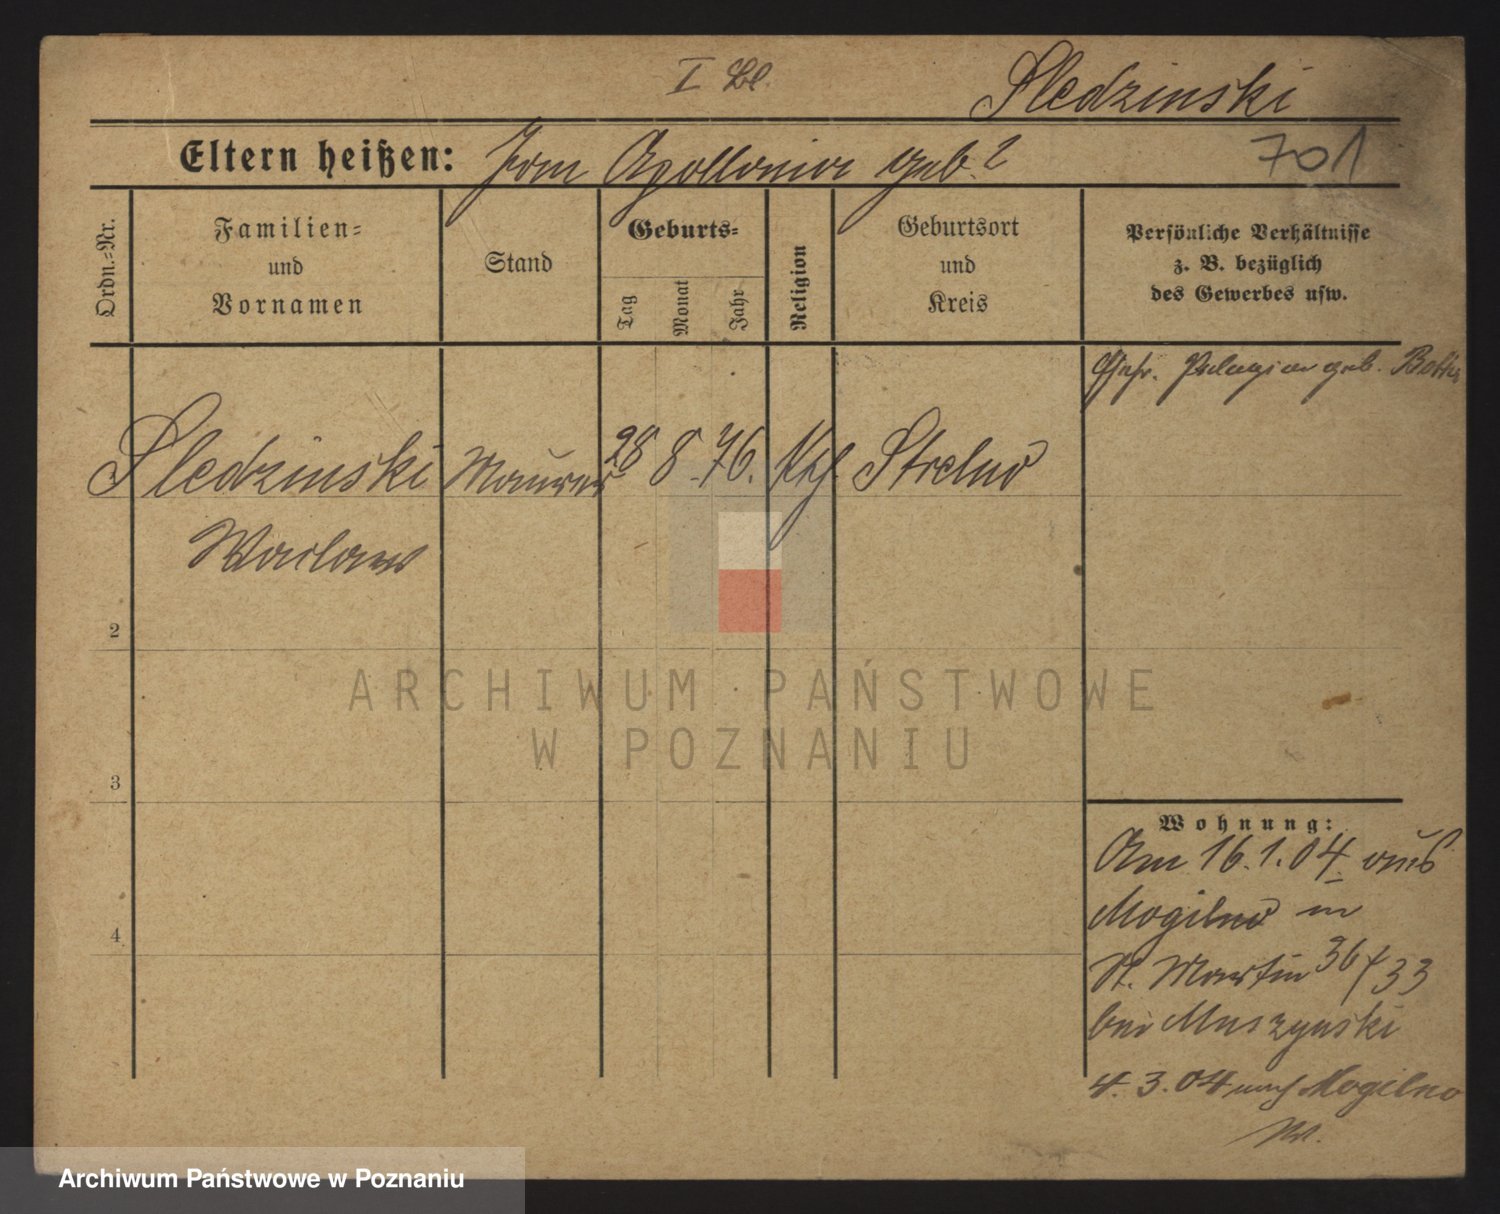 I Bl.
Sledzinski
Eltern heißen:
Apollonia geb. ?
701
Ordn.-Nr.
Familien-
und
Vornamen
Stand
Geburts-
Tag
Monat
Jahr
Religion
Geburtsort
und
Kreis
Persönliche Verhältnisse
z. B. bezüglich
des Gewerbes usw.
Ehefr. Pelagia geb.
Sledzinski Maurer 28 8 76. Kth. Strelno
Waclaw
2
3
4
Wohnung:
Am 16.1.04. aus
Mogilno in
St. Martin 36/33
bei Muszynski
4.3.04 nach Mogilno
ARCHIWUM PAŃSTWOWE
W POZNANIU
Archiwum Państwowe w Poznaniu